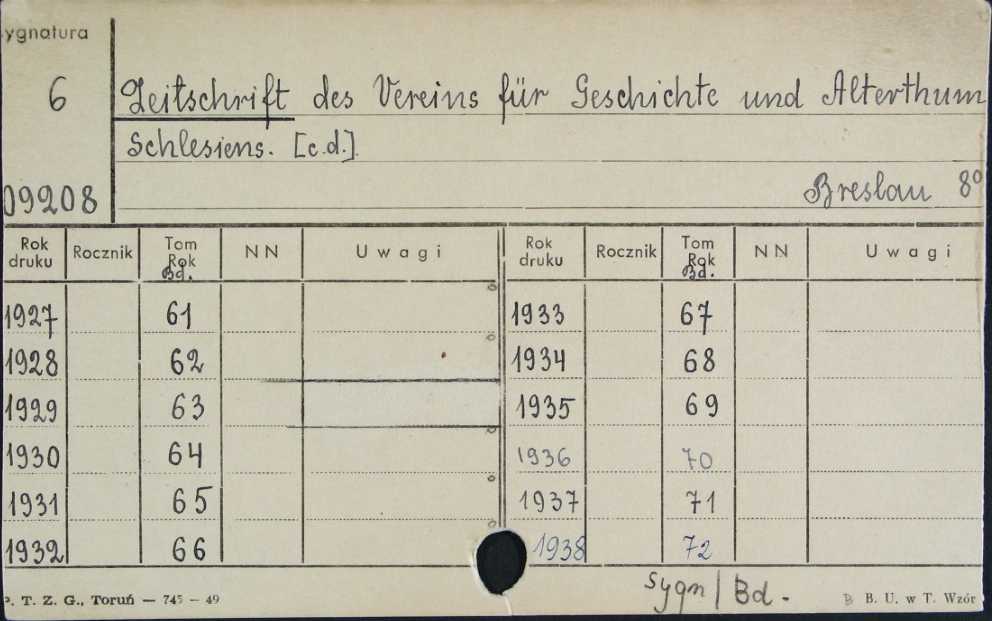 ygnatura
6 Zeitschrift des Vereins für Geschichte und Alterthum
Schlesiens. [c.d.].
09208 Breslau 8º
Rok druku Rocznik Tom Rok Bd. NN Uwagi Rok druku Rocznik Tom Rok Bd. NN Uwagi
1927 61 1933 67
1928 62 1934 68
1929 63 1935 69
1930 64 1936 70
1931 65 1937 71
1932 66 1938 72
Sygn/Bd.
P. T. Z. G., Toruń — 745 — 49 B. U. w T. Wzór